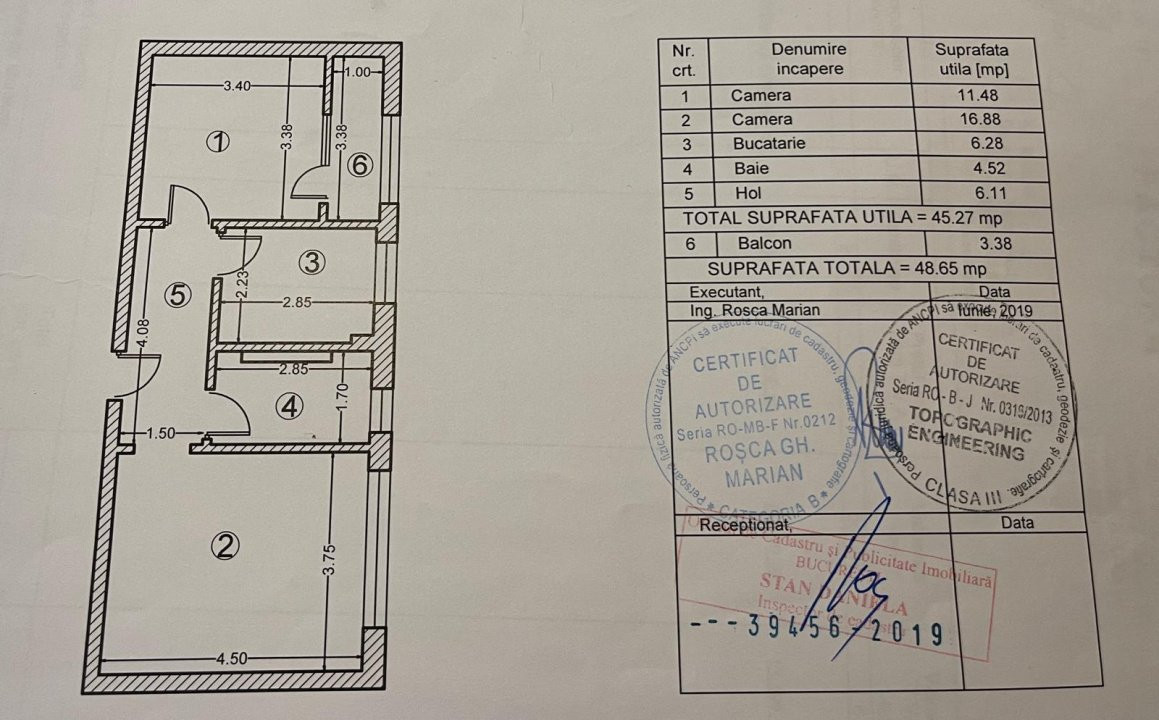 1.00
3.40
3.38
3.38
1
6
3
2.23
2.85
5
4.08
2.85
1.70
4
1.50
2
3.75
4.50
Nr. crt. Denumire incapere Suprafata utila [mp]
1 Camera 11.48
2 Camera 16.88
3 Bucatarie 6.28
4 Baie 4.52
5 Hol 6.11
TOTAL SUPRAFATA UTILA = 45.27 mp
6 Balcon 3.38
SUPRAFATA TOTALA = 48.65 mp
Executant, Data
Ing. Rosca Marian Iunie, 2019
Persoana fizică autorizată de ANCPI să execute lucrări de cadastru, geodezie și cartografie
CERTIFICAT
DE
AUTORIZARE
Seria RO-MB-F Nr.0212
ROȘCA GH.
MARIAN
* CATEGORIA B *
Persoană juridică autorizată de ANCPI să execute lucrări de cadastru, geodezie și cartografie.
CERTIFICAT
DE
AUTORIZARE
Seria RO - B - J Nr. 0319/2013
TOPOGRAPHIC
ENGINEERING
CLASA III
Receptionat, Data
de Cadastru și Publicitate Imobiliară
STAN DANIELA
Inspector de cadastru
---39456-2019